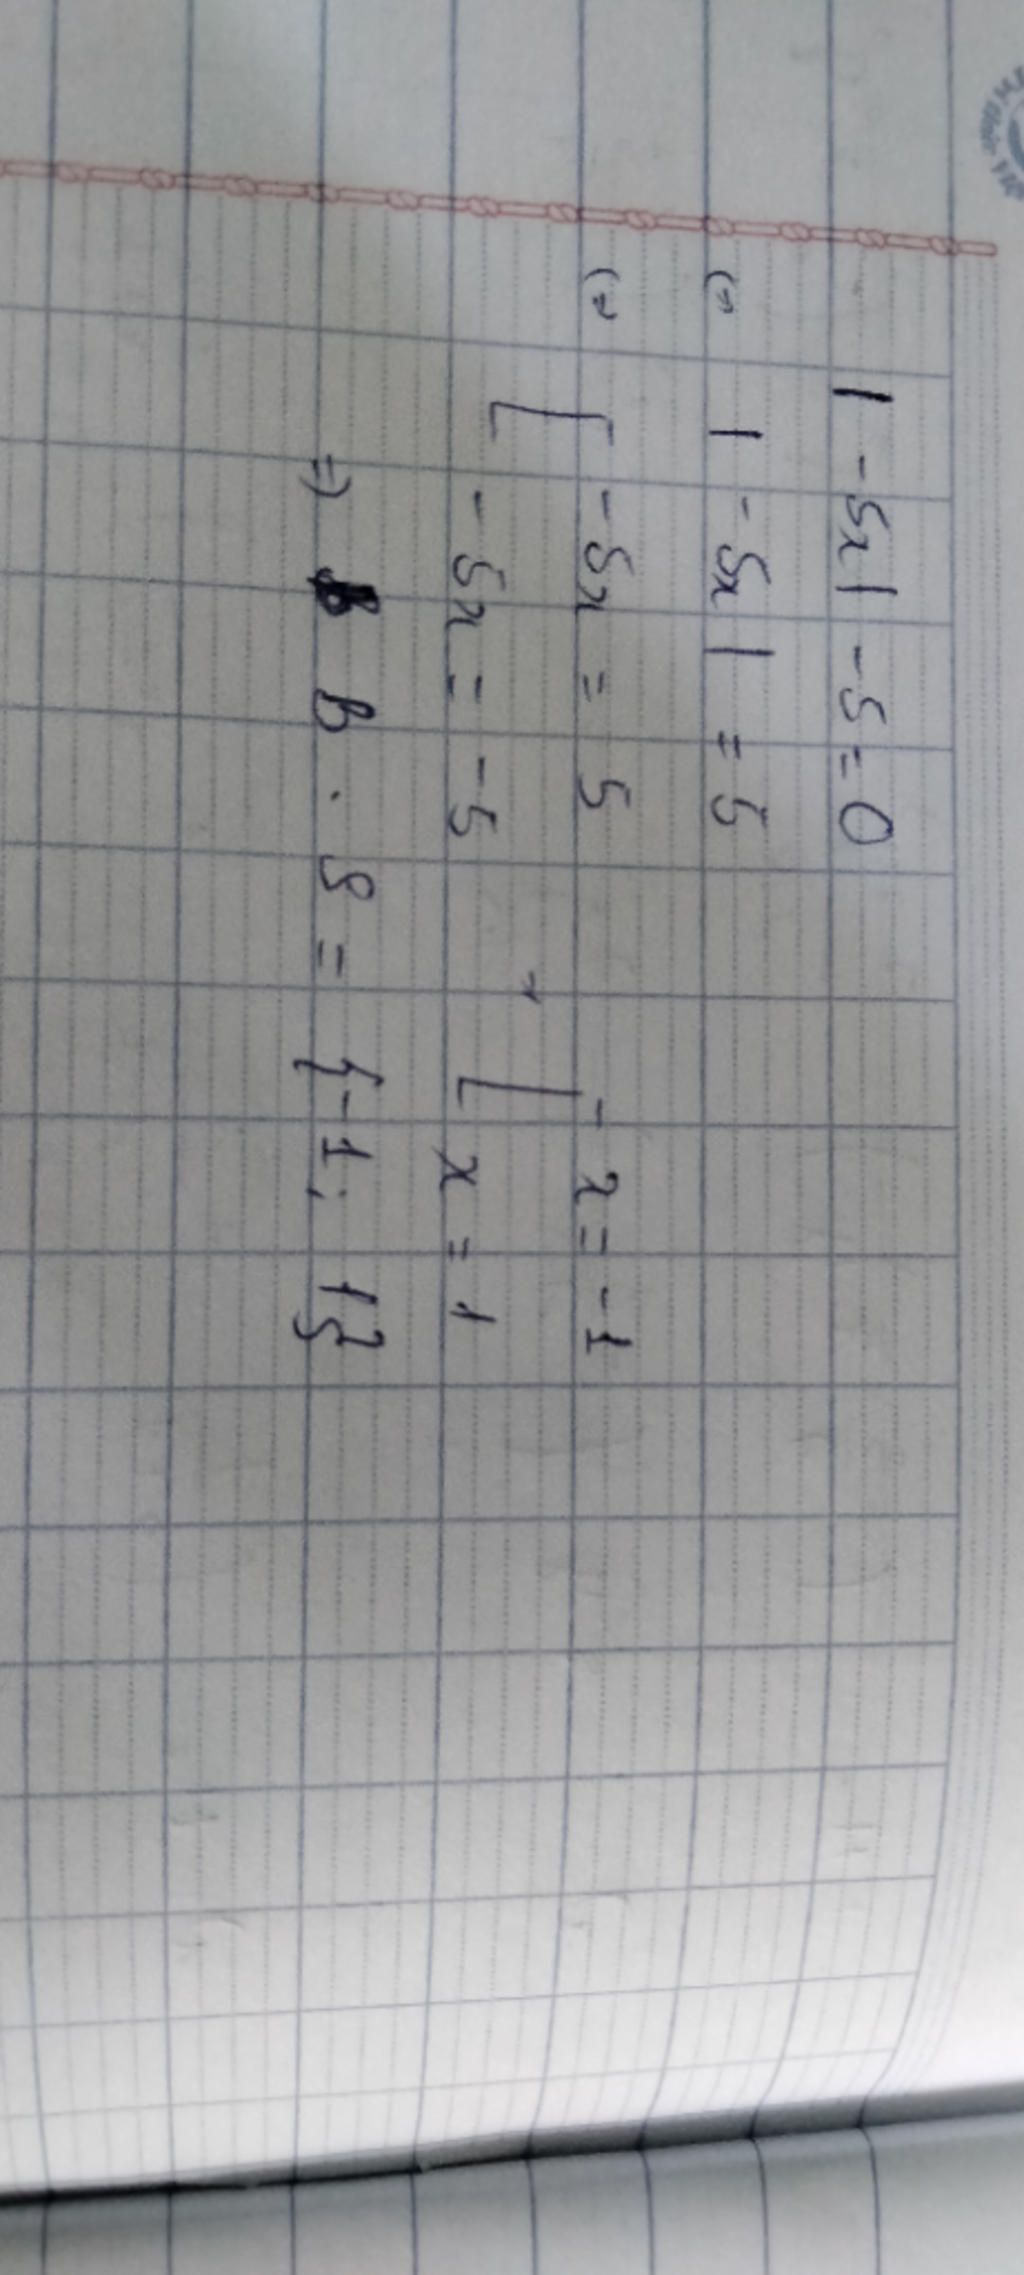 |-5x|-5=0
(=) |-5x| = 5
(=) [ -5x = 5 [ x = -1
-5x = -5 x = 1
=) B. S = {-1; 1}